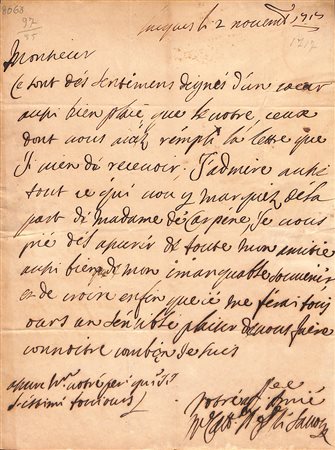 8068
97
85
le 2 novembr 1717
1717
Monsieur
Ce sont des sentimens dignes d'un coeur
aussi bien placé que le votre, ceux
dont vous avez rempli la lettre que
Ji vien de recevoir. J'admire aussi
tout ce qui vou y marquez de la
part de Madame de Carpene, Je vous
prie des de toute mon amitie
aussi bien de mon imanquable souvenir
et de croire enfin que ie me ferai touj
ours un sensible plaisir de vous faire
connoitre combien Je suis
votre pere qui
toujours
votre